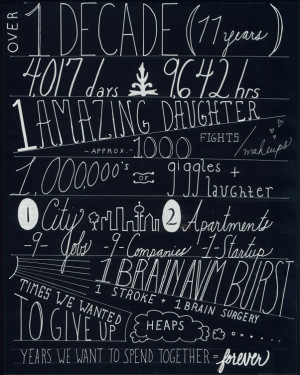 OVER 1 DECADE (11 years)
4017 days 9642 hrs
1 AMAZING DAUGHTER
-APPROX.- 1000 FIGHTS / makeups
1,000,000's OF giggles + laughter
1 City 2 Apartments
-9- Jobs -9- Companies -1- Startup
1 BRAIN AVM BURST
1 STROKE + 1 BRAIN SURGERY
TIMES WE WANTED TO GIVE UP HEAPS
YEARS WE WANT TO SPEND TOGETHER = forever